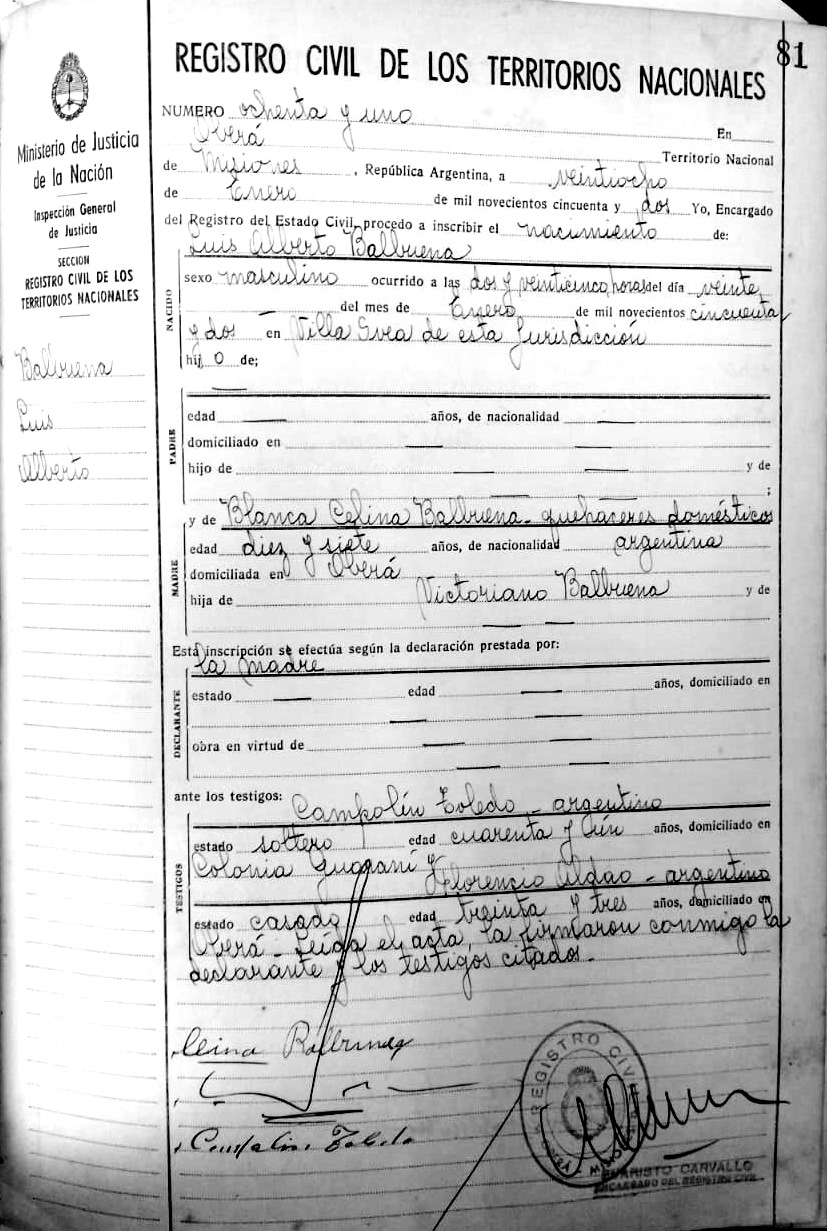 81
REGISTRO CIVIL DE LOS TERRITORIOS NACIONALES
Ministerio de Justicia
de la Nación
Inspección General
de Justicia
SECCION
REGISTRO CIVIL DE LOS
TERRITORIOS NACIONALES
Balbuena
Luis
Alberto
NUMERO ochenta y uno En
Oberá Territorio Nacional
de Misiones, República Argentina, a veintiocho
de Enero de mil novecientos cincuenta y dos Yo, Encargado
del Registro del Estado Civil, procedo a inscribir el nacimiento de:
NACIDO
Luis Alberto Balbuena
sexo masculino ocurrido a las dos y veinticinco horas del día veinte
— del mes de Enero de mil novecientos cincuenta
y dos en Villa Svea de esta Jurisdicción
hij o de;
—
PADRE
edad — años, de nacionalidad —
domiciliado en — —
hijo de — — y de
— — ;
MADRE
y de Blanca Celina Balbuena - quehaceres domésticos
edad diez y siete años, de nacionalidad argentina
domiciliada en Oberá
hija de Victoriano Balbuena y de
— —
Esta inscripción se efectúa según la declaración prestada por:
DECLARANTE
la madre
estado — edad — años, domiciliado en
— —
obra en virtud de — —
— —
ante los testigos: Campolín Toledo - argentino
TESTIGOS
estado soltero edad cuarenta y un años, domiciliado en
Colonia Guaraní y Florencio Aldao - argentino
estado casado edad treinta y tres años, domiciliado en
Oberá - Leída el acta, la firmaron conmigo la
declarante y los testigos citados.-
Balbuena
Toledo
REGISTRO CIVIL
EVARISTO CARVALLO
ENCARGADO DEL REGISTRO CIVIL